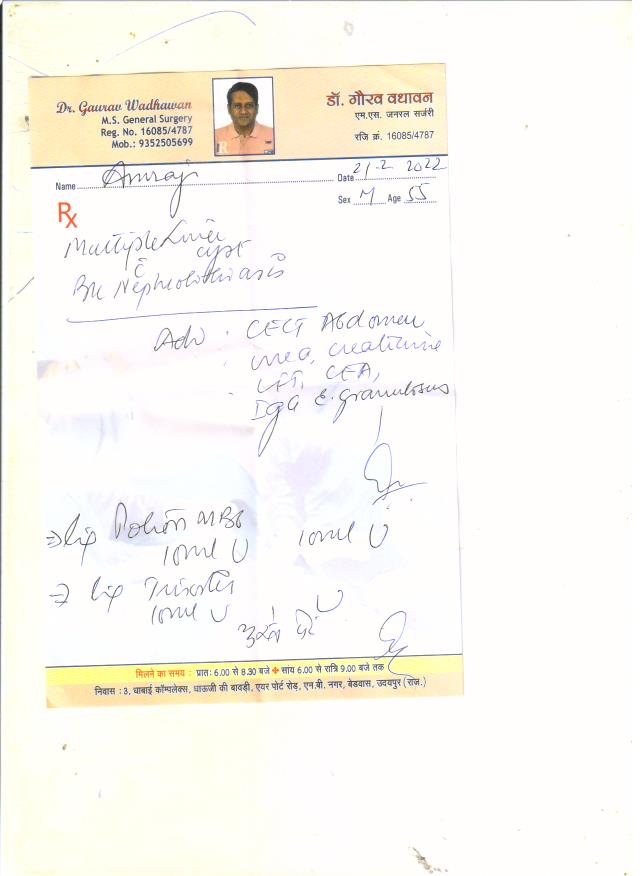 Dr. Gaurav Wadhawan
M.S. General Surgery
Reg. No. 16085/4787
Mob.: 9352505699
डॉ. गौरव वधावन
एम.एस. जनरल सर्जरी
रजि क्रं. 16085/4787
Name
Date 21-2 2022
Sex M Age 55
Rx
Multiple Liver
cyst
c̄
Nephrolithiasis
Adv . CECT Abdomen
urea, creatinine
LFT, CEA,
E. granulosus
10ml 10ml
10ml
मिलने का समय : प्रातः 6.00 से 8.30 बजे ✤ सांय 6.00 से रात्रि 9.00 बजे तक
निवास : 3, धाबाई कॉम्पलेक्स, धाऊजी की बावड़ी, एयर पोर्ट रोड़, एन.बी. नगर, बेडवास, उदयपुर (राज.)